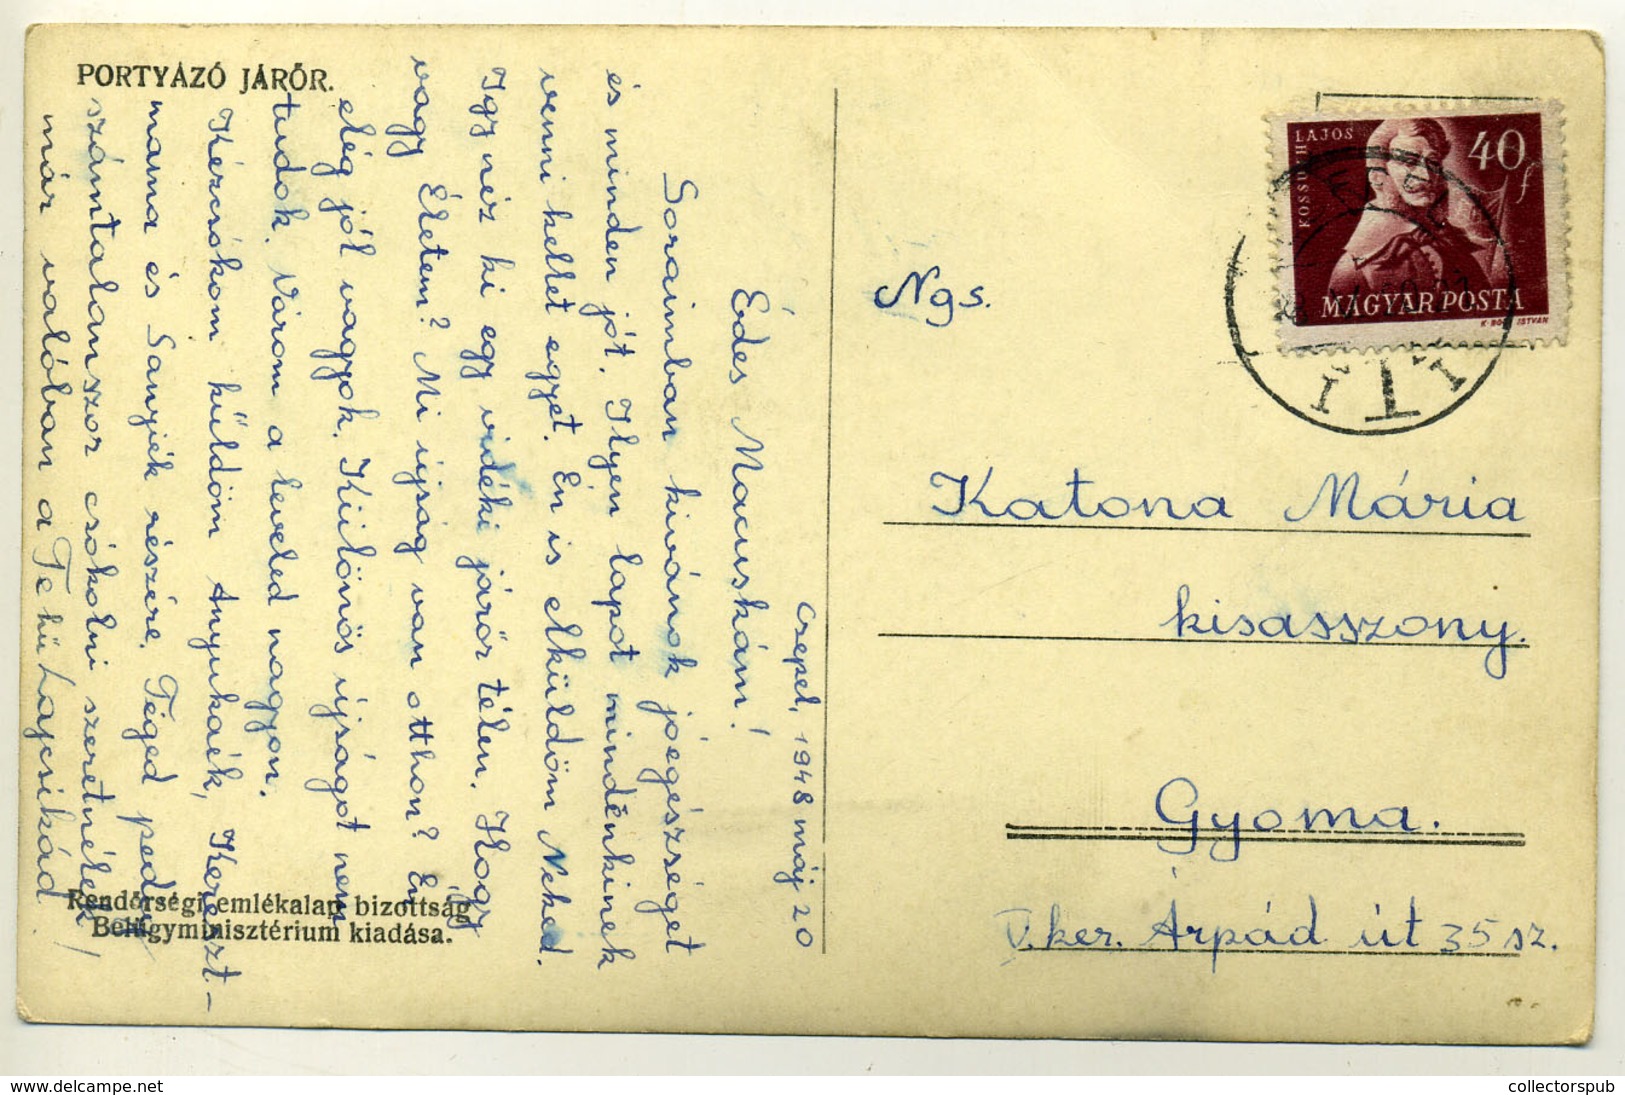 PORTYÁZÓ JÁRŐR.
Csepel, 1948 máj 20
Édes Macuskám!
Soraimban kivánok jóegészséget
és minden jót. Ilyen lapot mindenkinek
venni kellet egyet. Én is elküldöm Neked.
Igy néz ki egy vidéki járőr télen. Hogy
vagy Életem? Mi ujság van otthon? Én
elég jól vagyok. Különös újságot nem
tudok. Várom a leveled nagyon.
Kézcsókom küldöm Anyukáék, Kereszt-
mama és Sanyiék részére. Téged pedig
számtalanszor csókolni szeretnélek
már valóban a Te hű Lajcsikád.
Rendőrségi emlékalap bizottság
Belügyminisztérium kiadása.
KOSSUTH LAJOS
40 f
MAGYAR POSTA
ISTVÁN
Ngs.
Katona Mária
kisasszony.
Gyoma.
V. ker. Árpád út 35 sz.
www.delcampe.net
collectorspub